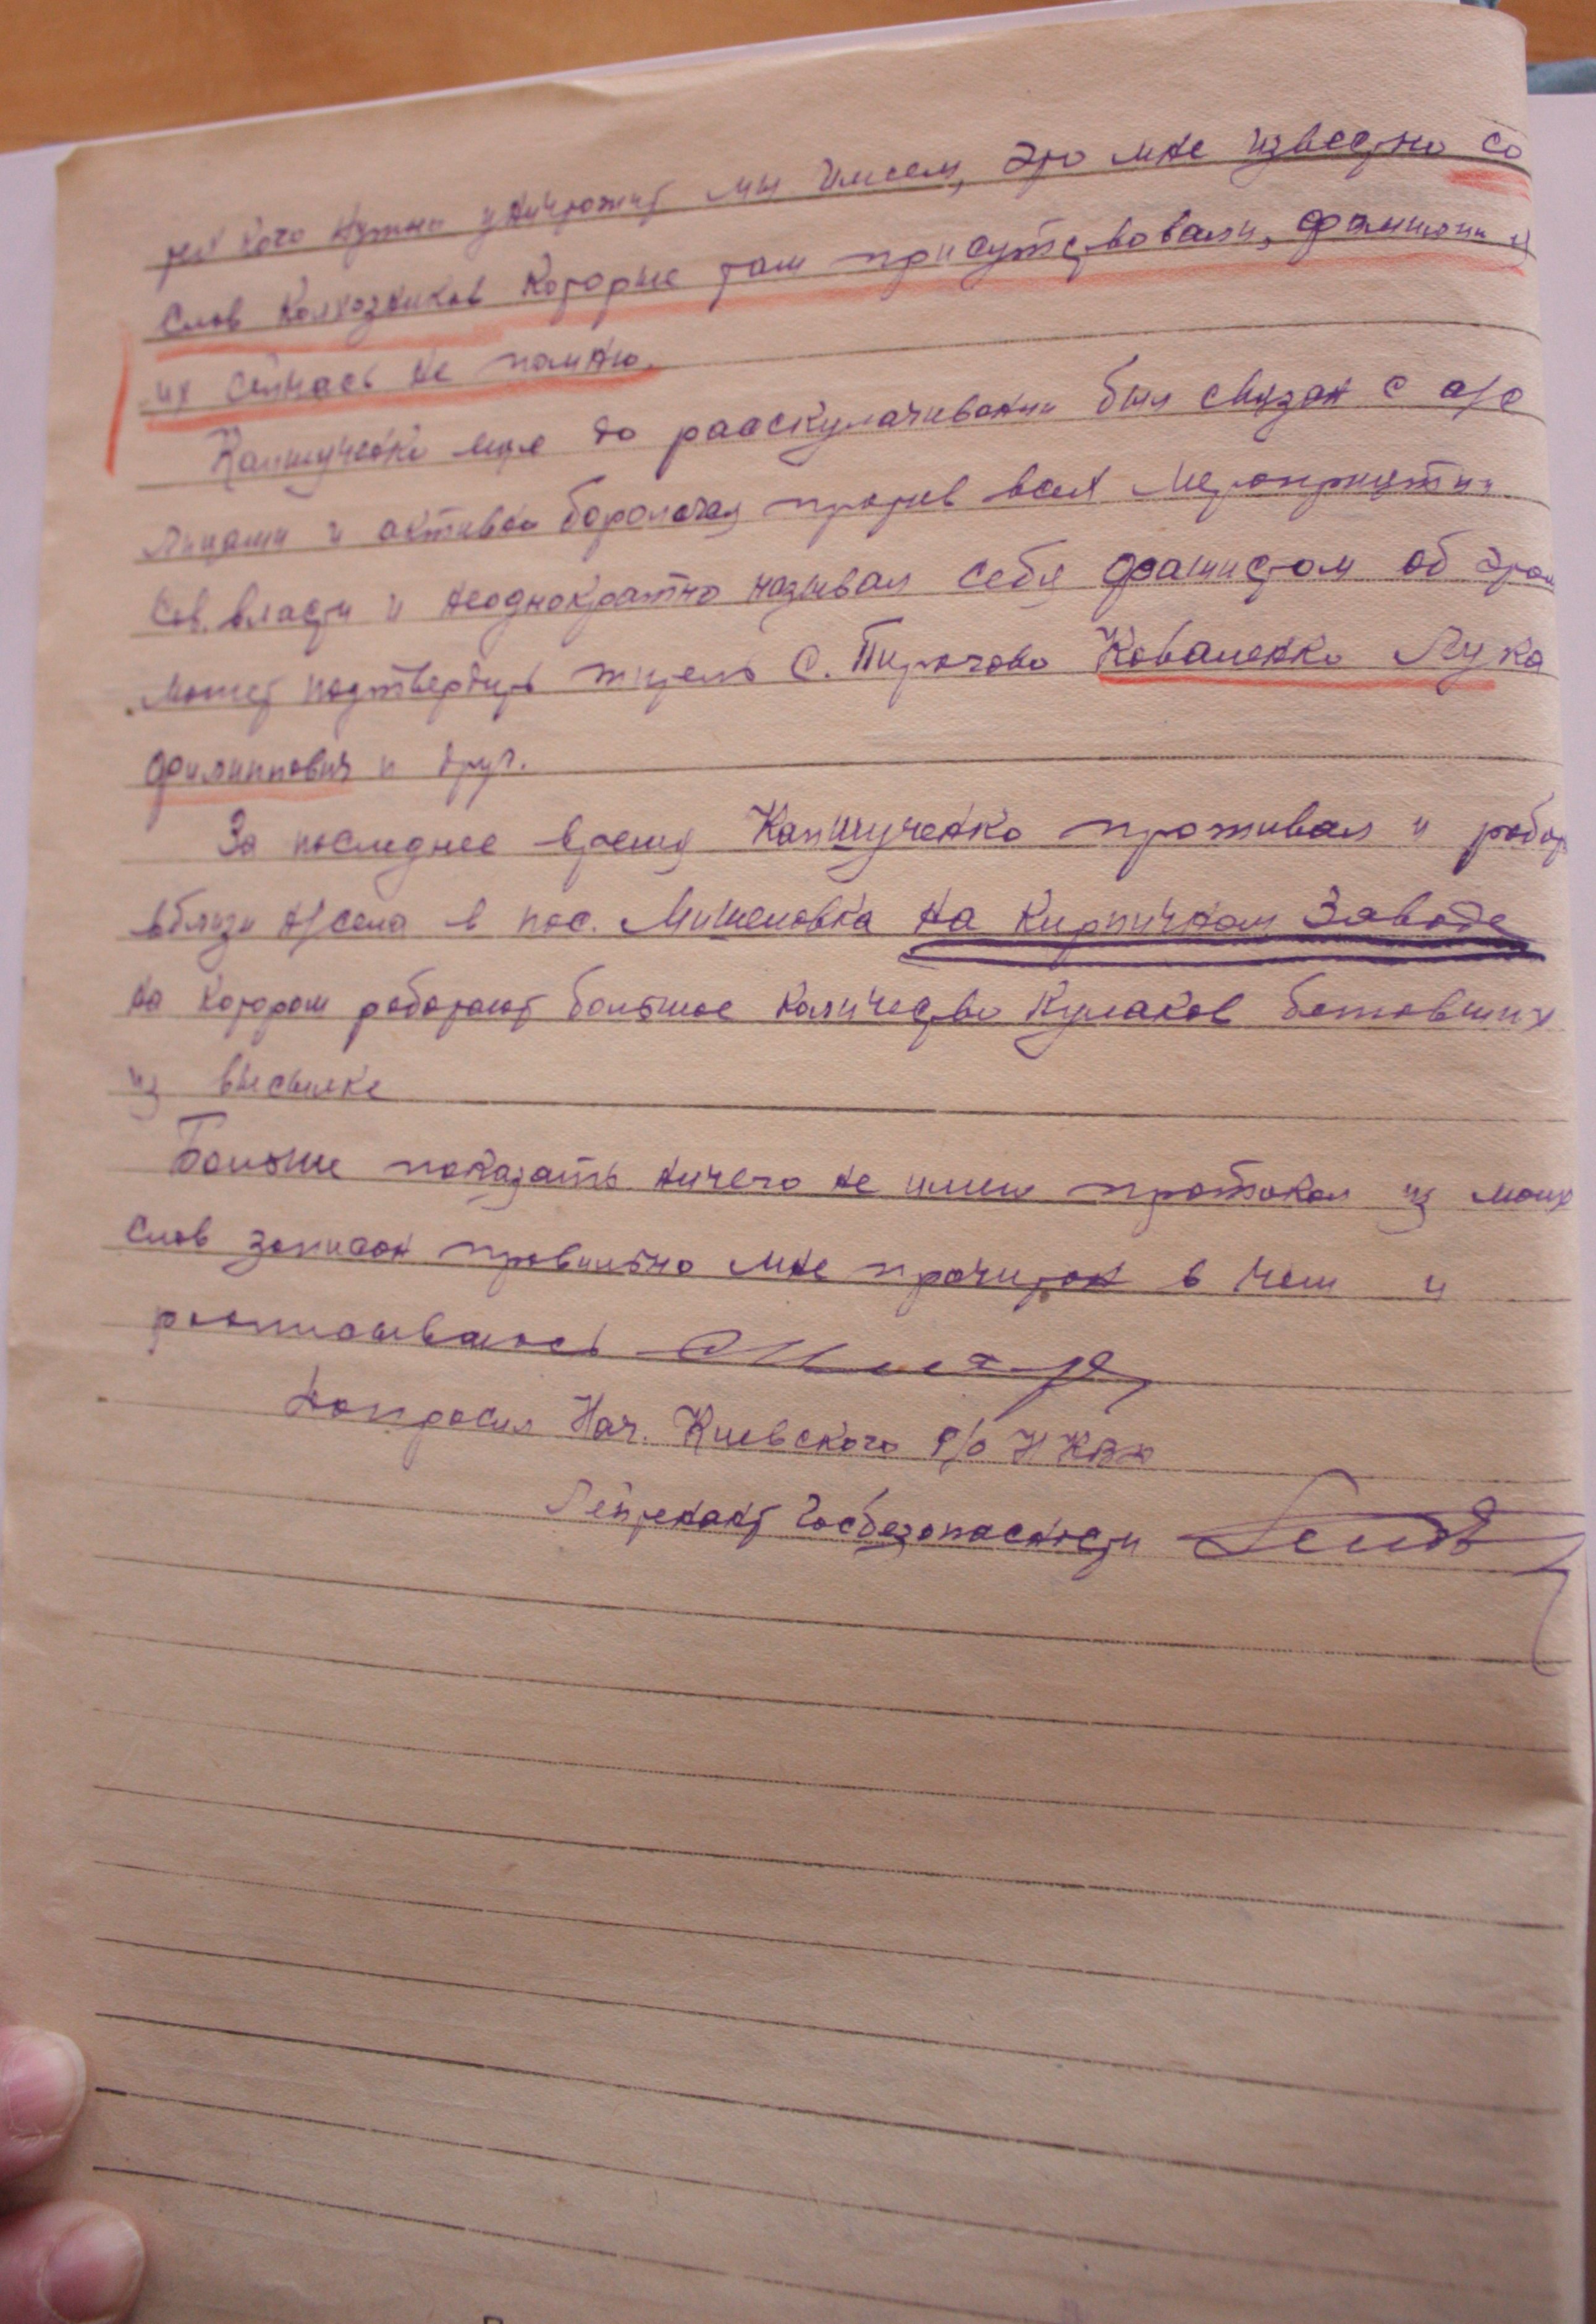 тех кого нужно уничтожит мы имеем, это мне известно со
слов колхозников которые там присутствовали, фамилии
их сейчась не помню.
Капшученко еще до рааскулачивания был связан с а/с
лицами и активно боролася против всех мероприятии
Сов. власти и неоднократно называл себя фашистом об этом
может подтвердить житель С. Пирогово Коваленко Лука
Филиппович и друг.
За последнее время Капшученко проживал и работ
вблизи н/села в пос. Мишеловка на Кирпичном Заводе
на котором работают большое количество кулаков бежавших
из высылке
Больше показать ничего не имею протокол из моих
слов записан правильно мне прочитан в чем и
росписываюсь
Допросил Нач. Киевского Р/о НКВД
Лейтенант Госбезопасности